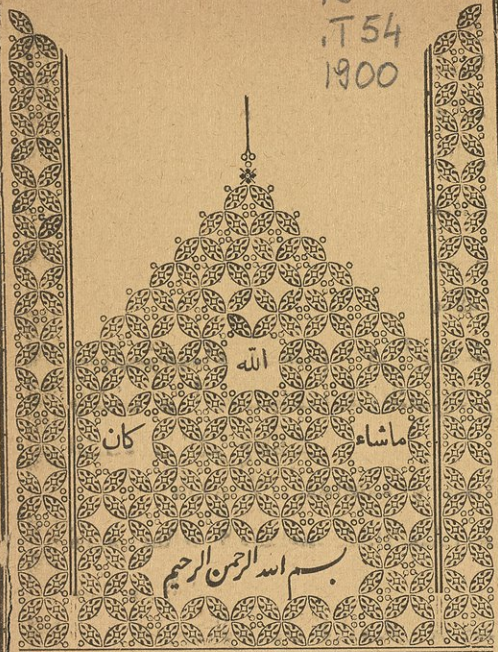 .T54
1900
الله
ماشاء كان
بسم الله الرحمن الرحيم